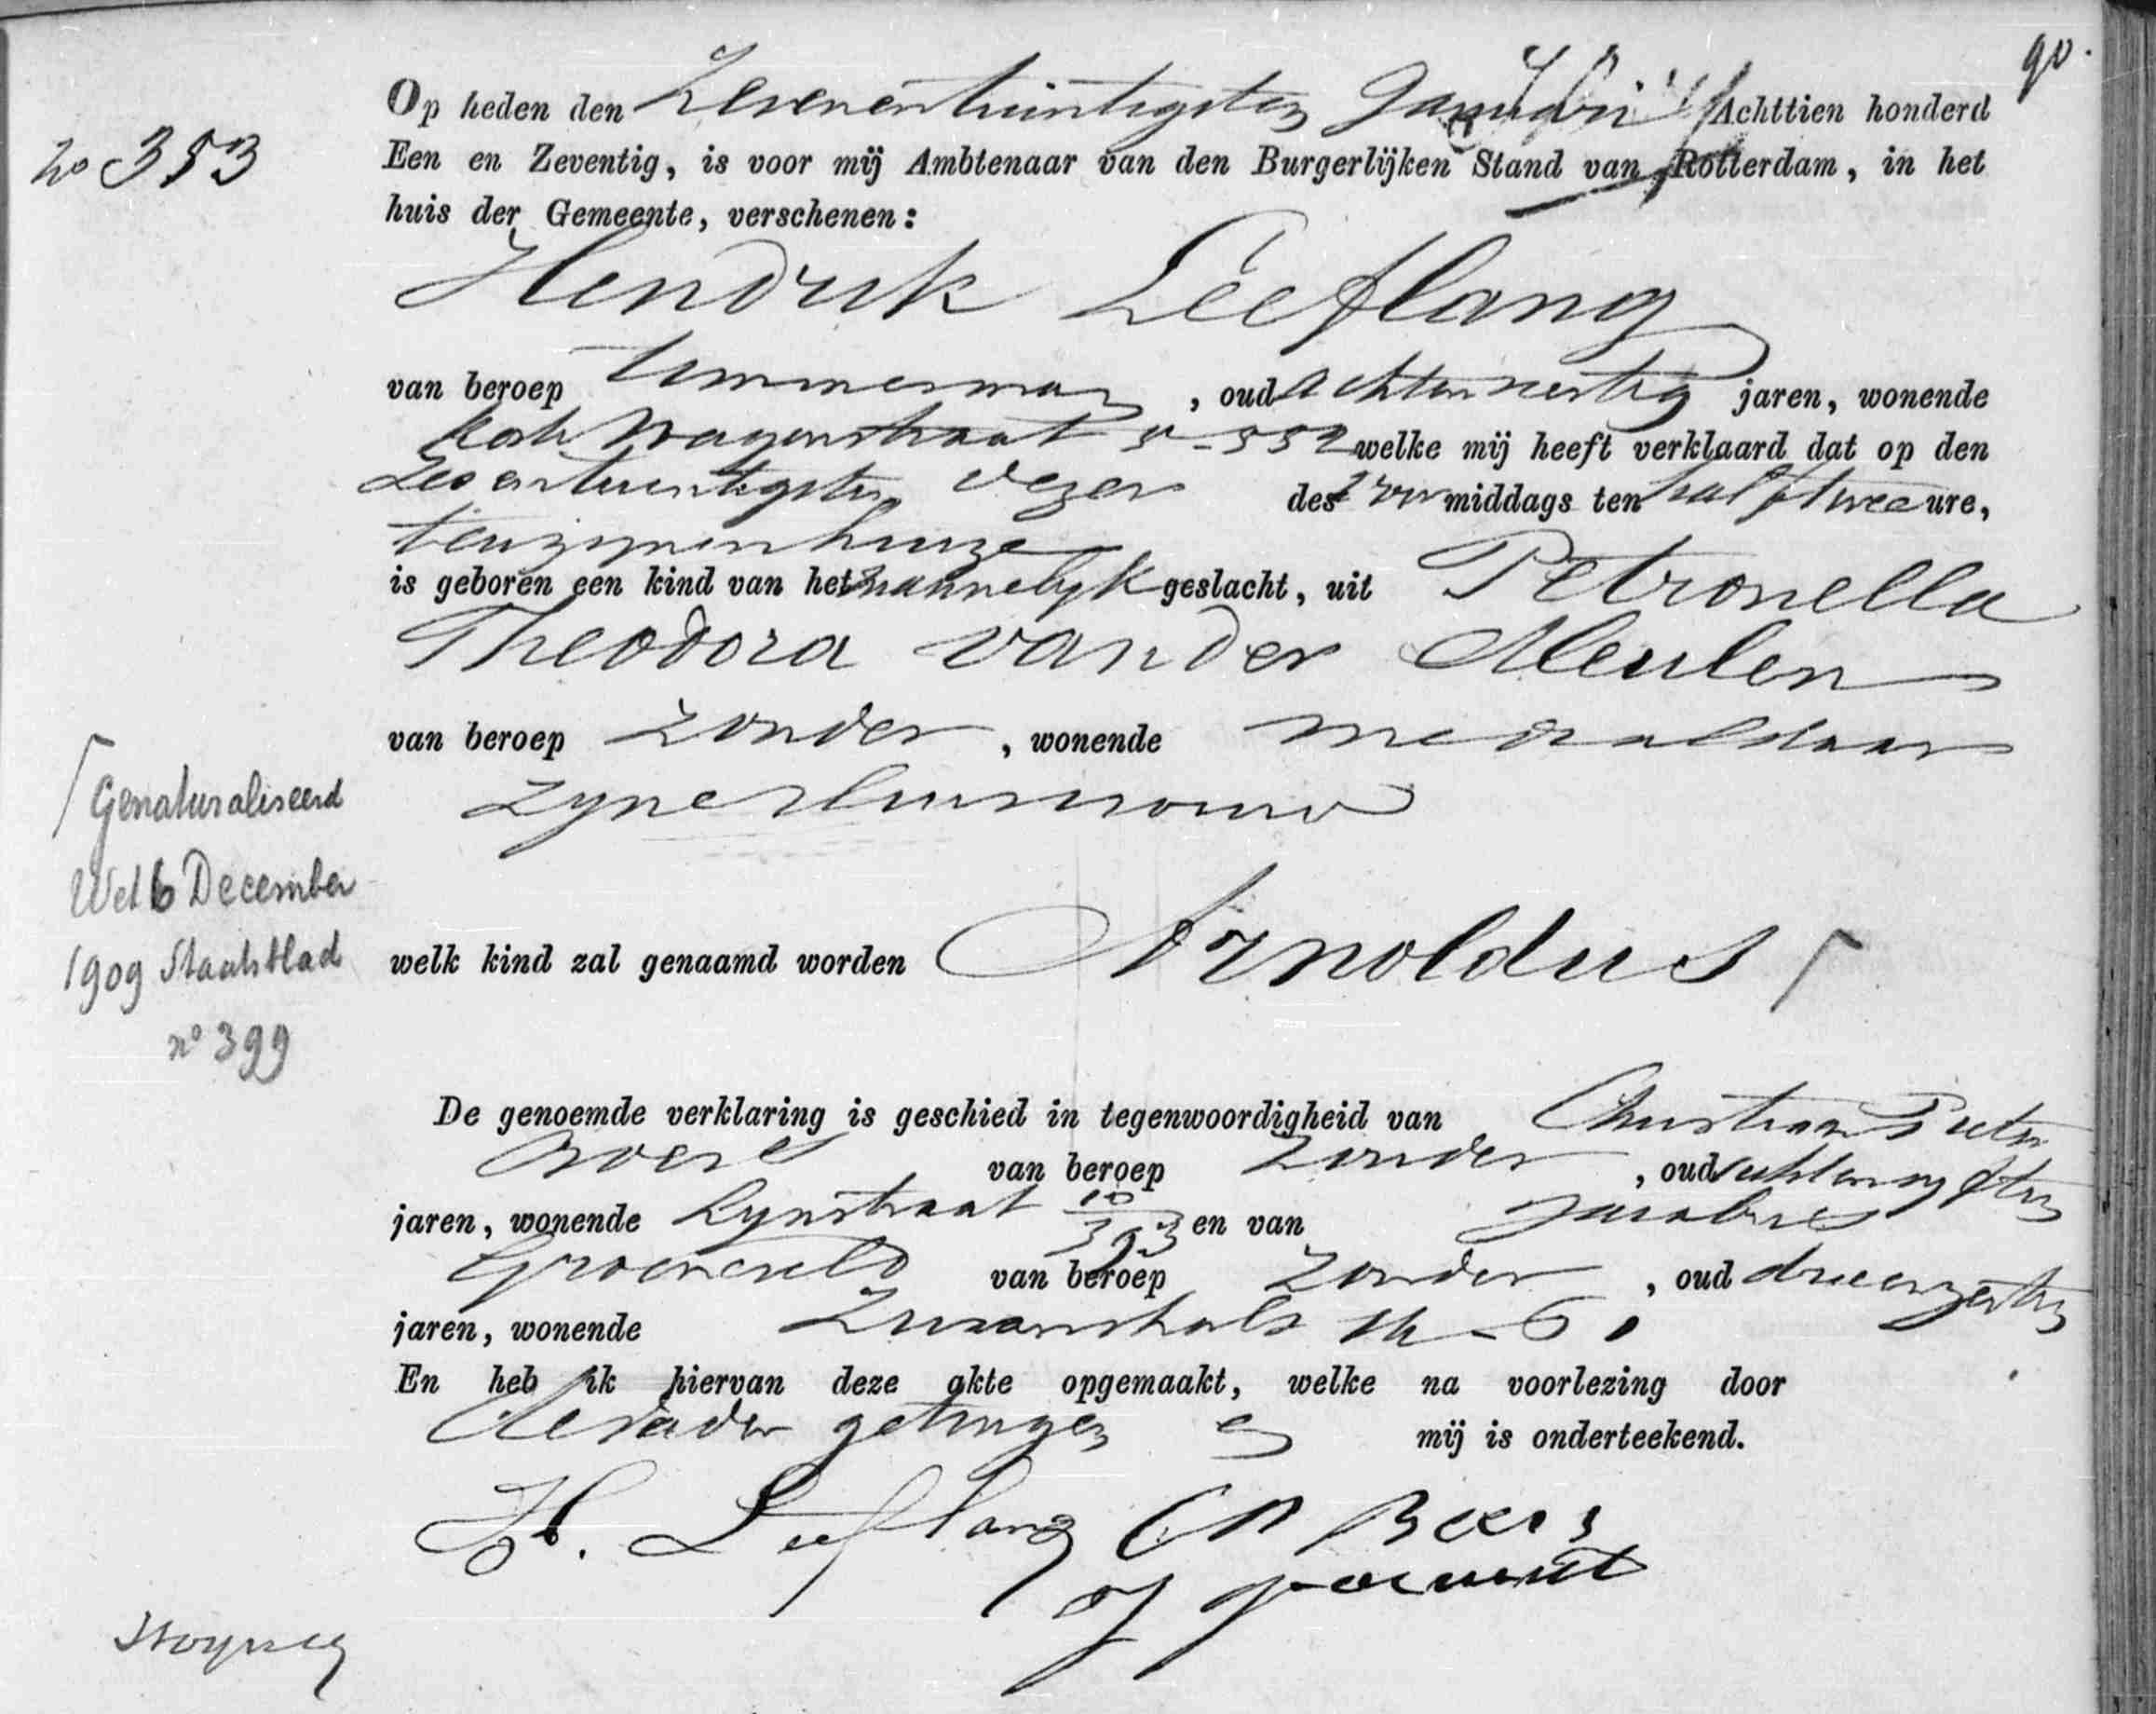 90.
No 353
Op heden den Zevenentwintigsten Januari Achttien honderd
Een en Zeventig, is voor mij Ambtenaar van den Burgerlijken Stand van Rotterdam, in het
huis der Gemeente, verschenen:
Hendrik Leeflang
van beroep timmerman, oud achtenveertig jaren, wonende
Wagenstraat welke mij heeft verklaard dat op den
Zesentwintigsten dezer des middags ten half twee ure,
tenzijnenhuize
is geboren een kind van het mannelijk geslacht, uit Petronella
Theodora van der Meulen
van beroep zonder, wonende mede aldaar
zijne huisvrouw
Genaturaliseerd
Wet 6 December
1909 Staatsblad
no 399
welk kind zal genaamd worden Arnoldus
De genoemde verklaring is geschied in tegenwoordigheid van Christiaan Pieter
van beroep zonder, oud
jaren, wonende Lijnstraat 10 393 en van Jacobus
Groeneveld van beroep zonder, oud drieenzestig
jaren, wonende Zwaanshals
En heb ik hiervan deze akte opgemaakt, welke na voorlezing door
de vader getuigen en mij is onderteekend.
H. Leeflang